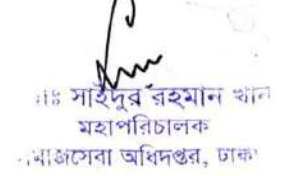 ঃ সাইদুর রহমান খান
মহাপরিচালক
সমাজসেবা অধিদপ্তর, ঢাকা